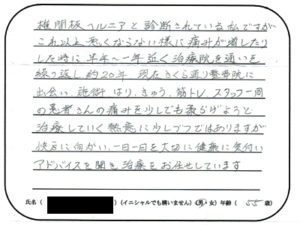 椎間板ヘルニアと診断されている私ですが
これ以上悪くならない様に痛みが増したり
した時に半年〜一年近く治療院を通いを
繰り返し約20年、現在さくら通り整骨院に
出会い、施術、はり、きゅう、筋トレ スタッフ一同
の患者さんの痛みを少しでも和らげようと
治療していく熱意に少しづつではありますが
快方に向かい、一日一日を大切に健康に気付い
アドバイスを聞き治療をお任せしています
氏名( (イニシャルでも構いません) (男・女) 年齢( 55 歳)